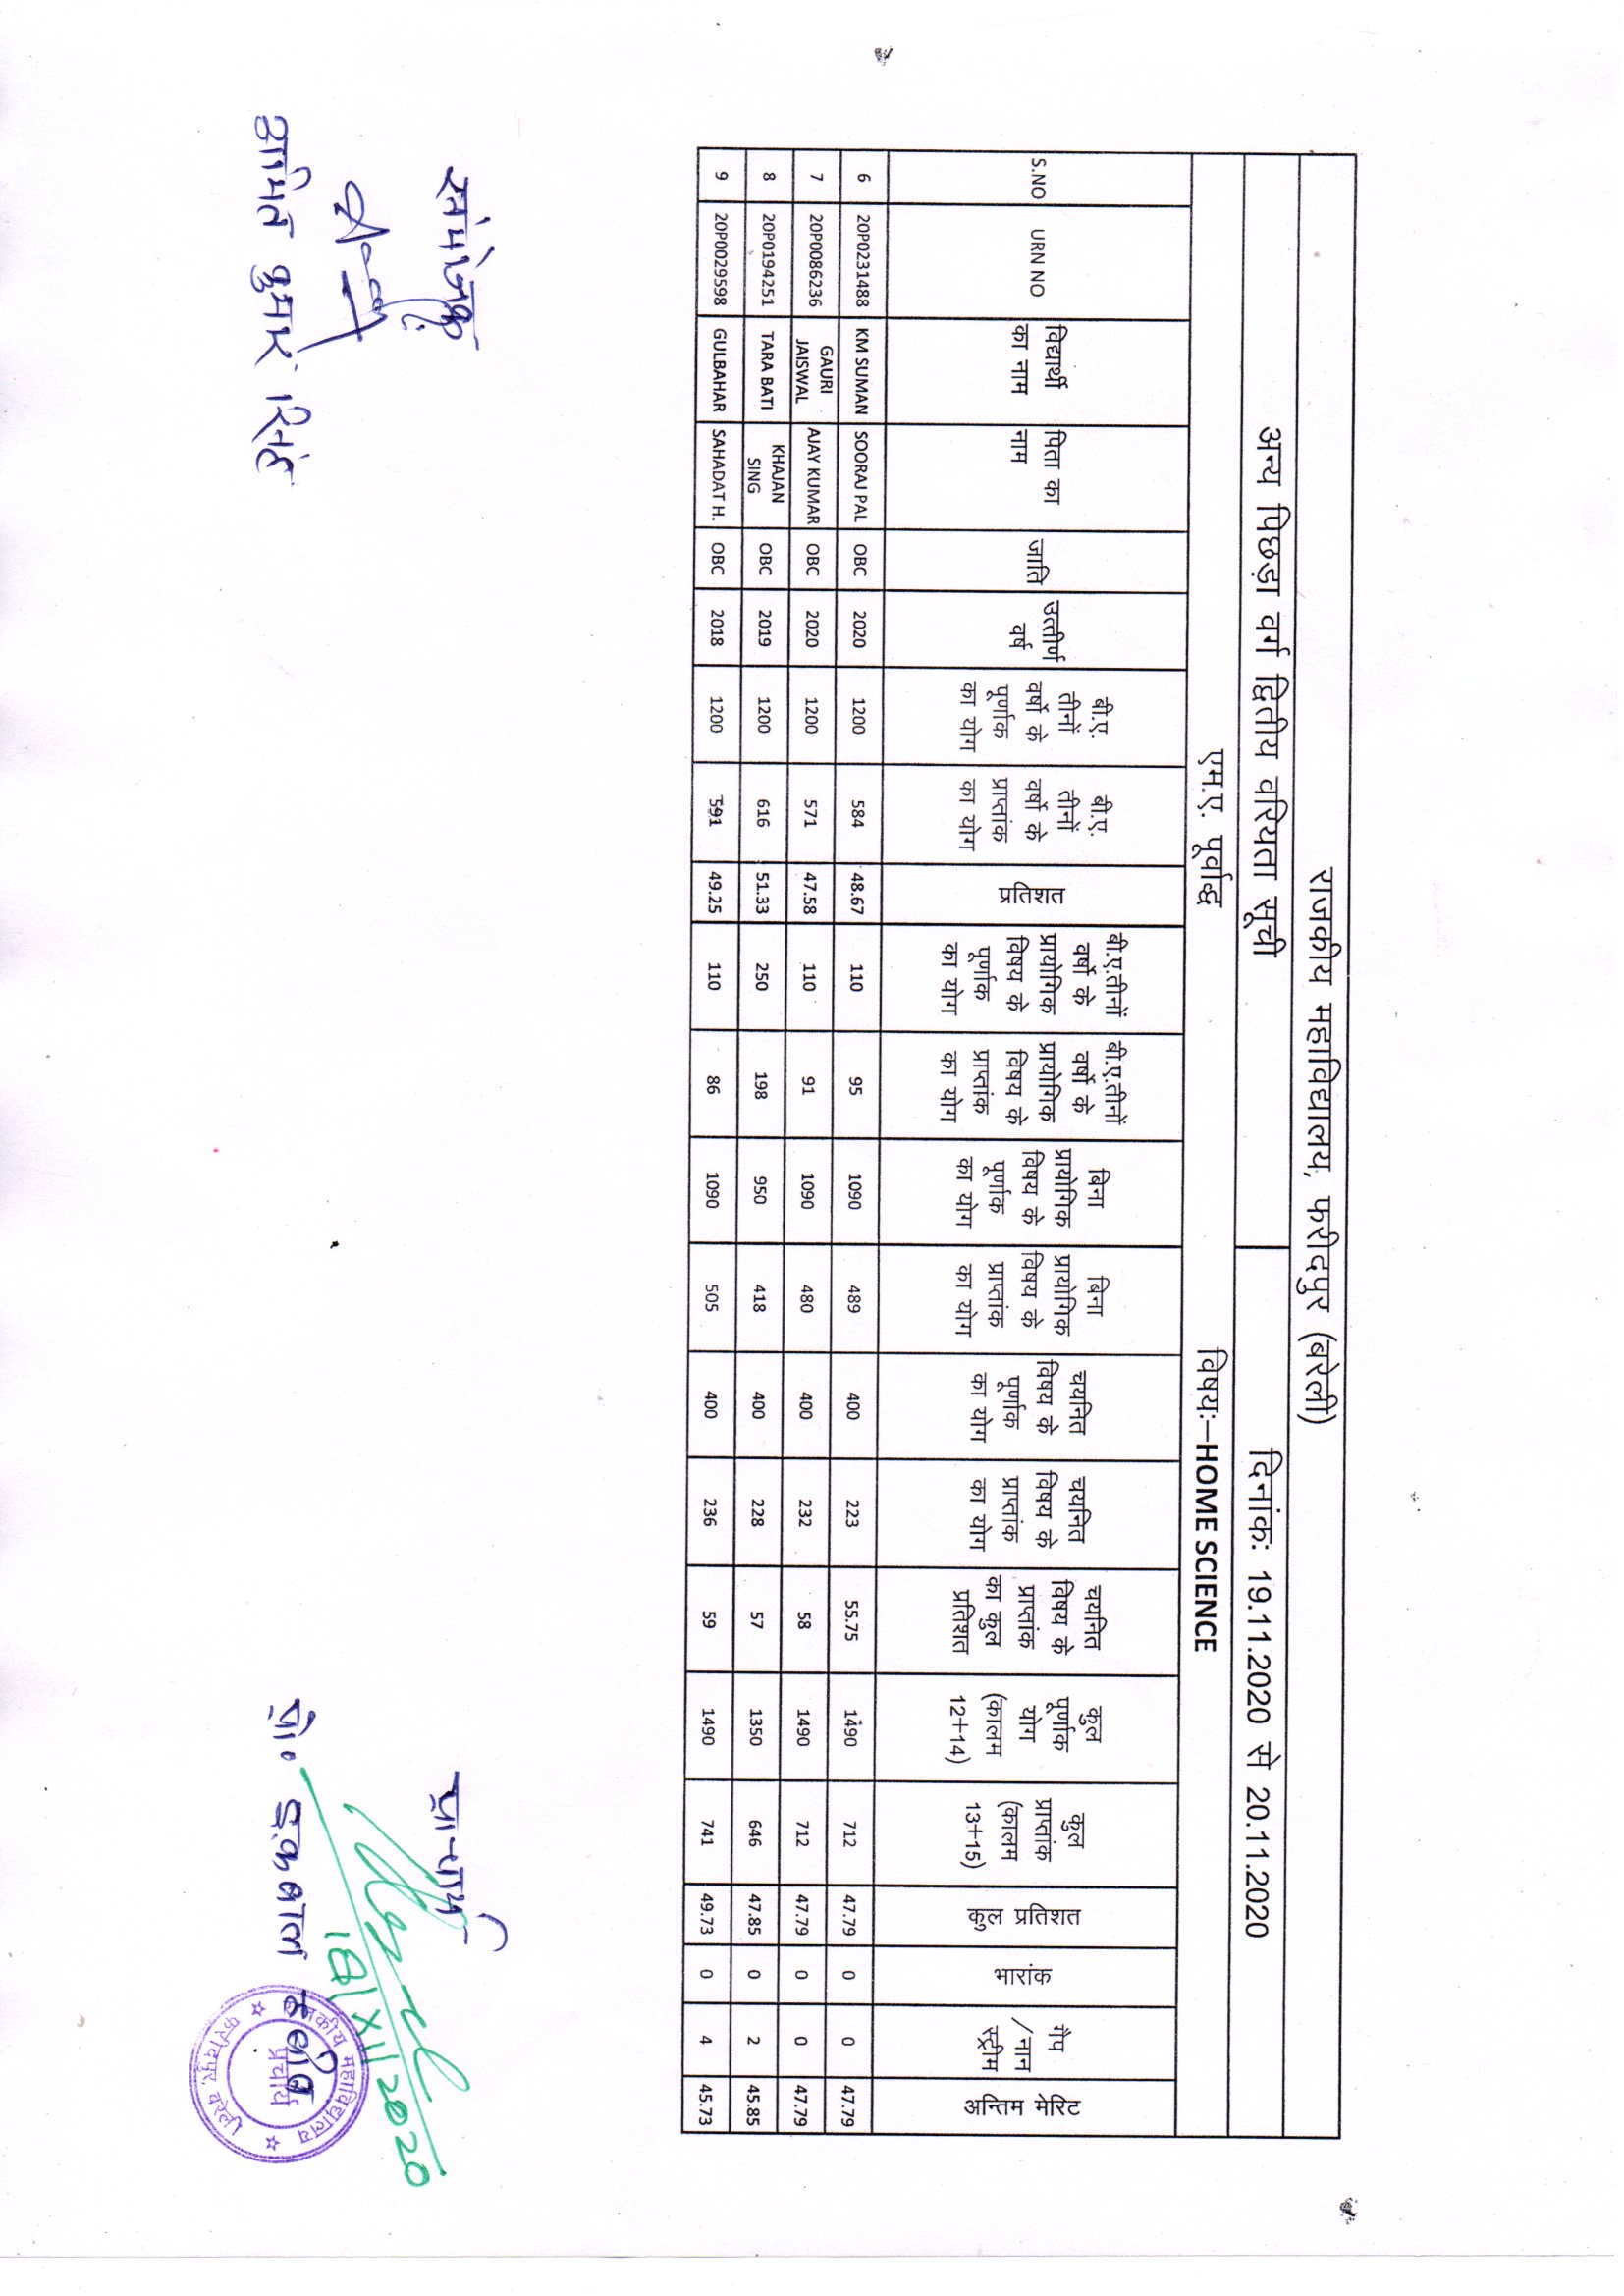 राजकीय महाविद्यालय, फरीदपुर (बरेली)
अन्य पिछड़ा वर्ग द्वितीय वरियता सूची दिनांकः 19.11.2020 से 20.11.2020
एम.ए. पूर्वाद्ध विषयः–HOME SCIENCE
S.NO URN NO विद्यार्थी का नाम पिता का नाम जाति उत्तीर्ण वर्ष बी.ए. तीनों वर्षो के पूर्णाक का योग बी.ए. तीनों वर्षो के प्राप्तांक का योग प्रतिशत बी.ए.तीनों वर्षो के प्रायोगिक विषय के पूर्णाक का योग बी.ए.तीनों वर्षो के प्रायोगिक विषय के प्राप्तांक का योग बिना प्रायोगिक विषय के पूर्णाक का योग बिना प्रायोगिक विषय के प्राप्तांक का योग चयनित विषय के पूर्णाक का योग चयनित विषय के प्राप्तांक का योग चयनित विषय के प्राप्तांक का कुल प्रतिशत कुल पूर्णाक योग (कालम 12+14) कुल प्राप्तांक (कालम 13+15) कुल प्रतिशत भारांक गैप /नान स्ट्रीम अन्तिम मेरिट
6 20P0231488 KM SUMAN SOORAJ PAL OBC 2020 1200 584 48.67 110 95 1090 489 400 223 55.75 1490 712 47.79 0 0 47.79
7 20P0086236 GAURI JAISWAL AJAY KUMAR OBC 2020 1200 571 47.58 110 91 1090 480 400 232 58 1490 712 47.79 0 0 47.79
8 20P0194251 TARA BATI KHAJAN SING OBC 2019 1200 616 51.33 250 198 950 418 400 228 57 1350 646 47.85 0 2 45.85
9 20P0029598 GULBAHAR SAHADAT H. OBC 2018 1200 591 49.25 110 86 1090 505 400 236 59 1490 741 49.73 0 4 45.73
संयोजक
अमित कुमार सिंह
प्राचार्य
18/XII/2020
प्रो॰ इकबाल हबीब
राजकीय महाविद्यालय
प्रचार्य
फरीदपुर, बरेली